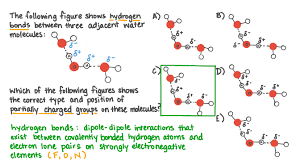 The following figure shows hydrogen
bonds between three adjacent water
molecules:
δ⁺
δ⁻
δ⁺
δ⁻
Which of the following figures shows
the correct type and position of
partially charged groups on these molecules?
A)
B)
C)
D)
E)
hydrogen bonds: dipole-dipole interactions that
exist between covalently bonded hydrogen atoms and
electron lone pairs on strongly electronegative
elements (F, O, N)